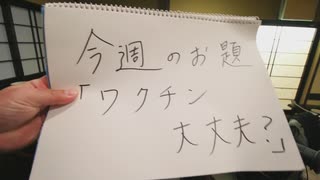 今週のお題
「ワクチン
大丈夫？」